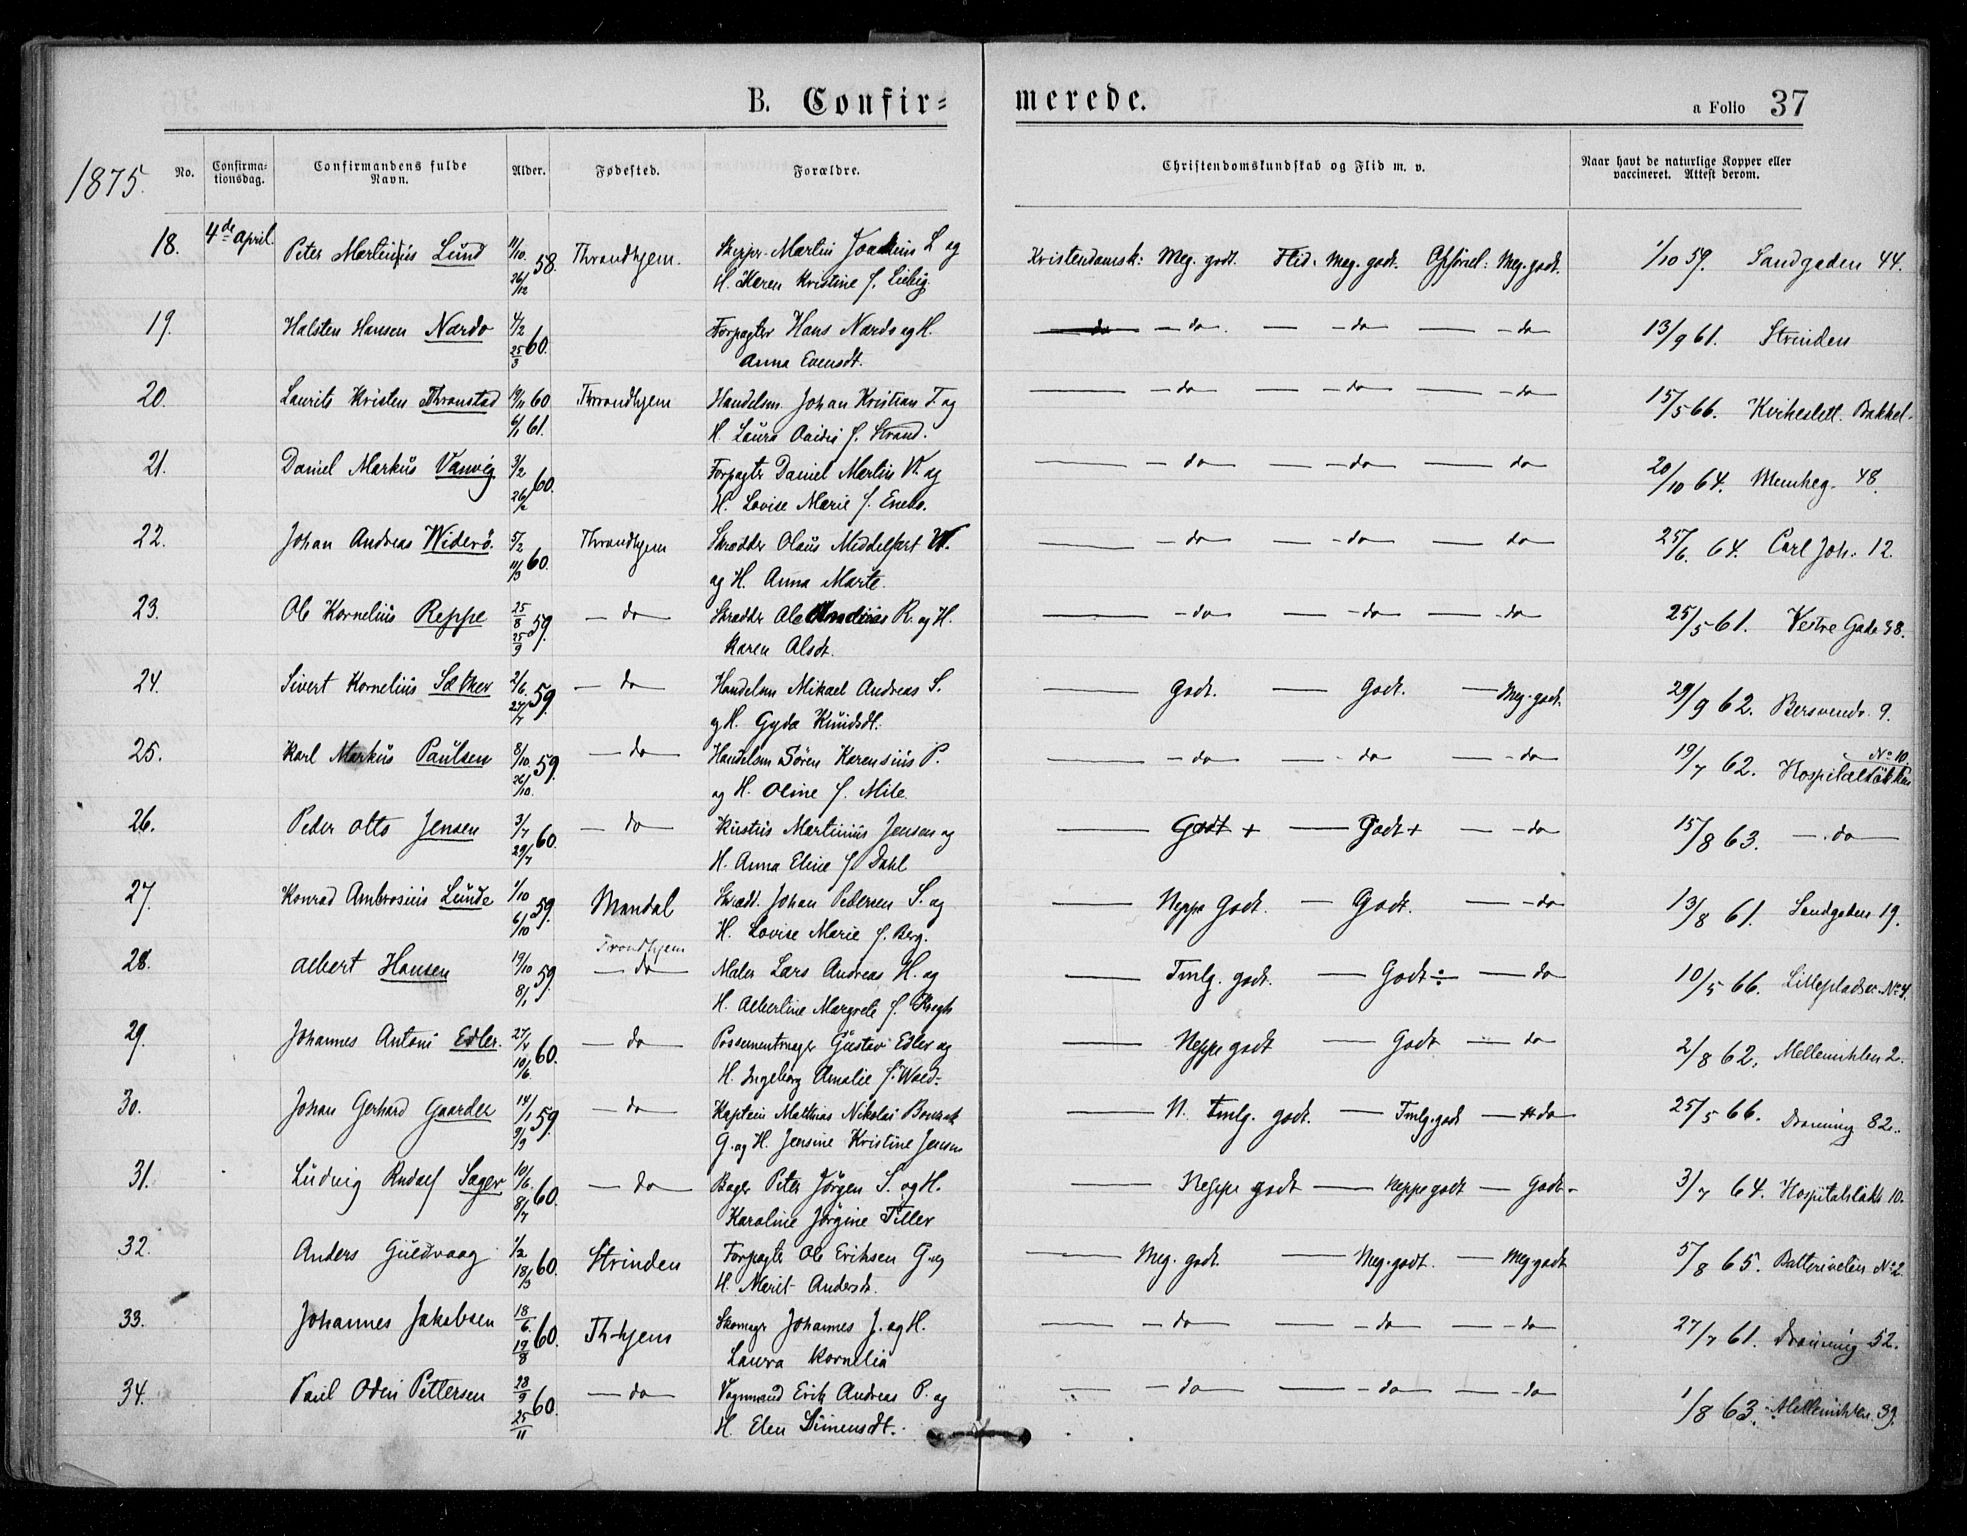 B. Confir= merede.
a Folio 37
1875.
No. Confirma=tionsdag. Confirmandens fulde Navn. Alder. Fødested. Forældre. Christendomskundskab og Flid m. v. Naar havt de naturlige Kopper eller vaccineret. Attest derom.
18. 4de April. Peter Martinius Lund 11/10 58. Throndhjem. Skippr. Martin Joakim L og Kristendomsk: Meg. godt. Flid. Meg. godt. Opførsel: Meg. godt. 1/10 59. Sandgaden 44.
26/12 H. Karen Kristine f. Liebig
19. Halsten Hansen Nardo 4/2 60. Forpagter Hans Nardo og H. do — do — do — do 13/9 61. Strinden
25/3 Anna Evensdt.
20. Laurits Kristen Thronstad 19/11 60 Throndhjem Handelsm. Johan Kristian T. og — do — do — do 15/5 66. Kirkeslett. Bakkel.
6/1 61. H. Laura f. Strand.
21. Daniel Markus Vanvig 3/2 60. Forpagtr Daniel Martin V. og — do — do — do 20/10 64. Munkeg. 48.
26/2 H. Lovise Marie f. Enebo.
22. Johan Andreas Widerö. 5/2 60. Throndhjem Skrædder Olaus Middelfart W. — do — do — do 25/6 64. Carl Joh. 12.
11/3 og H. Anna Marte.
23. Ole Kornelius Reppe 25/8 59. — do Skrædder Ole Andreas R. og H. — do — do — do 25/5 61. Vestre Gade 38.
25/9 Karen Olsdt.
24. Sivert Kornelius Sæther 2/6 59. — do Handelsm Mikael Andreas S. — Godt. — Godt. — Meg. godt. 29/9 62. Bersvendv. 9.
27/7 og H. Gyda Knudsdt.
25. Karl Markus Paulsen 8/10 59. — do Handelsm Sören Karensius P. — do — do — do 19/7 62. Hospitalsløkken No 10.
26/10. og H. Oline f. Mile.
26. Peder Otto Jensen 3/7 60. — do Martinius Jensen og — Godt + — Godt + — do 15/8 63. — do —
29/7 H. Anna Eline f. Dahl
27. Konrad Ambrosius Lunde 1/10 59. Mandal Skrædd. Johan Pedersen S. og — Neppe Godt. — Godt. — do 13/8 61. Sandgaden 19.
6/10 H. Lovise Marie f. Berg.
28. Albert Hansen 19/10 59. Trondhjem — do Maler Lars Andreas H. og — Tmlg. godt. — Godt ÷ — do 10/5 66. Lillepladsv. No 4.
8/1 H. Albertine Margrete f. Krogh
29. Johannes Antoni Edler. 27/4 60. — do Possementmager Gustav Edler og — Neppe godt — Godt — do 2/8 62. Mellemihlen 2.
10/6. H. Ingeborg Amalie f. Wold.
30. Johan Gerhard Gaarder 14/1 59. — do Kaptein Matthias Nikolai — N. Tmlg. godt. — Tmlg. godt — do 25/5 66. Dronning 82.
9/3 G. og H. Jensine Kristine Jensen
31. Ludvig Rudolf Sager 10/6. 60. — do Bager Peter Jörgen S. og H. — Neppe godt — neppe godt — Godt 3/7 64. Hospitalsløkk 10.
8/7 Karoline Jörgine Tiller
32. Anders Guldvaag 1/2 60. Strinden Forpagtr Ole Eriksen G. og — Meg. godt. — Meg. godt. — Meg. godt 5/8 65. Batteriveien No 2
18/3 H. Marit Andersdt.
33. Johannes Jakobsen 18/6. 60. Th-hjem Skomagr Johannes J. og H. — do — do — do 27/7 61. Dronning 52.
19/8 Laura Kornelia
34. Paul Odin Pettersen 28/9 60. — do Vognmand Erik Andreas P. og — do — do — do 1/8 63. Mellemihlen 39.
25/11 H. Elen Simensdt.